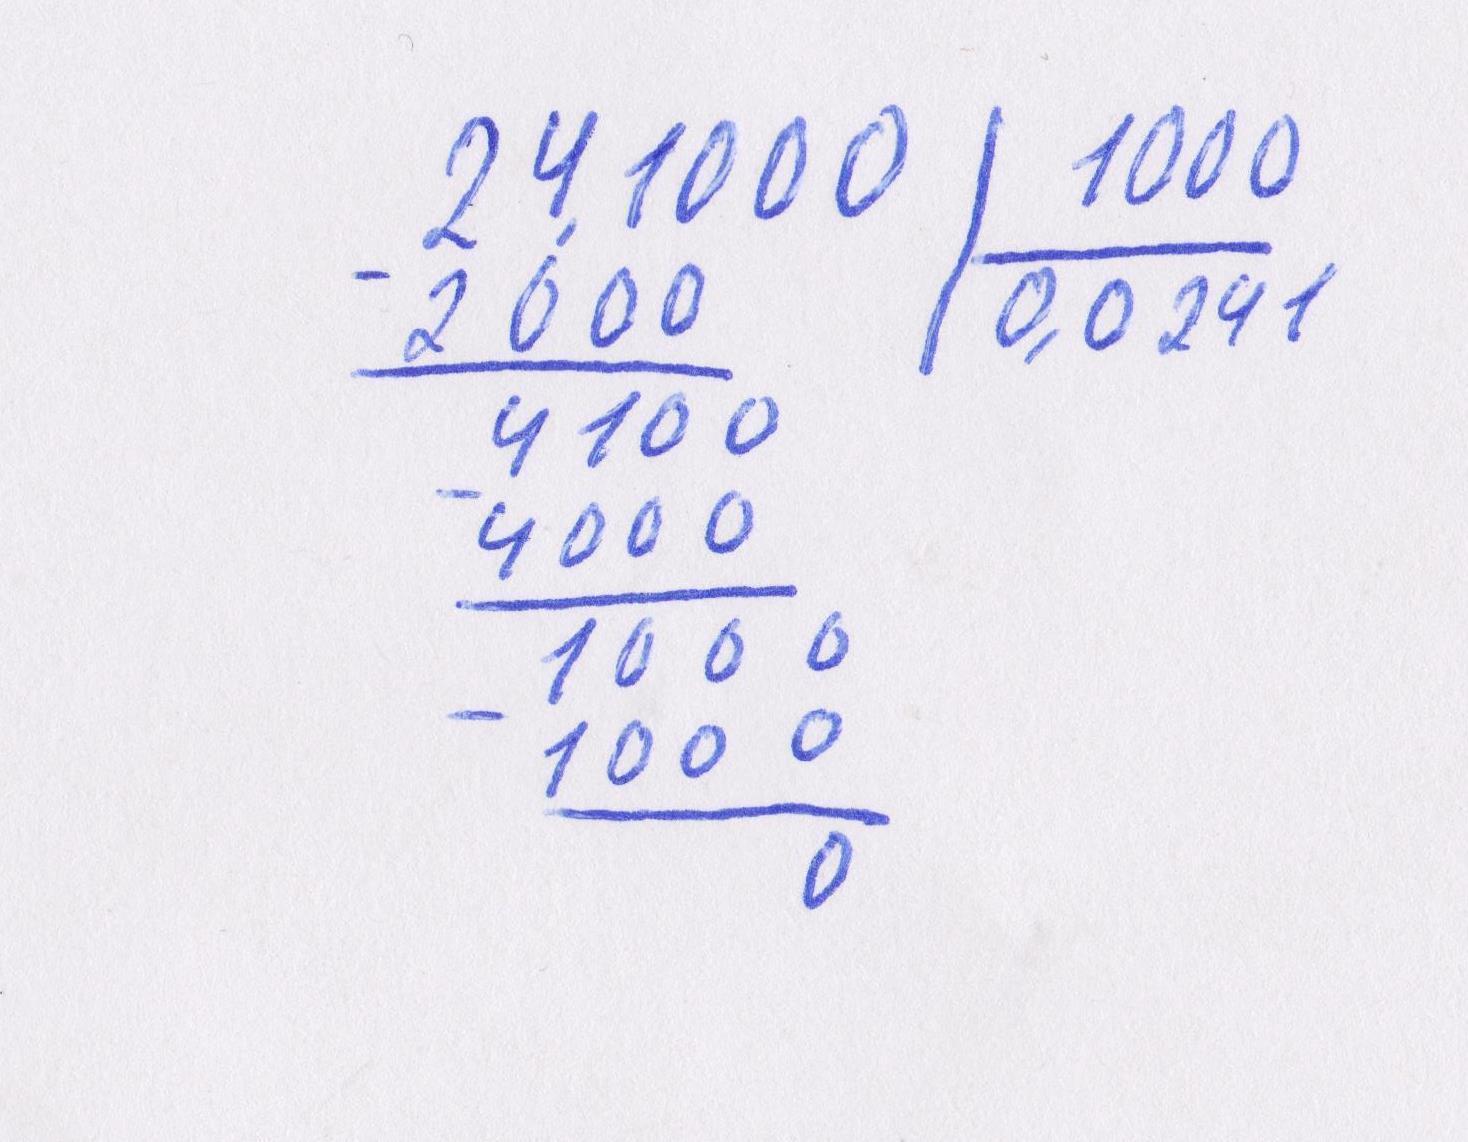 24,1000 | 1000
- 2000 | 0,0241
4100
- 4000
1000
- 1000
0